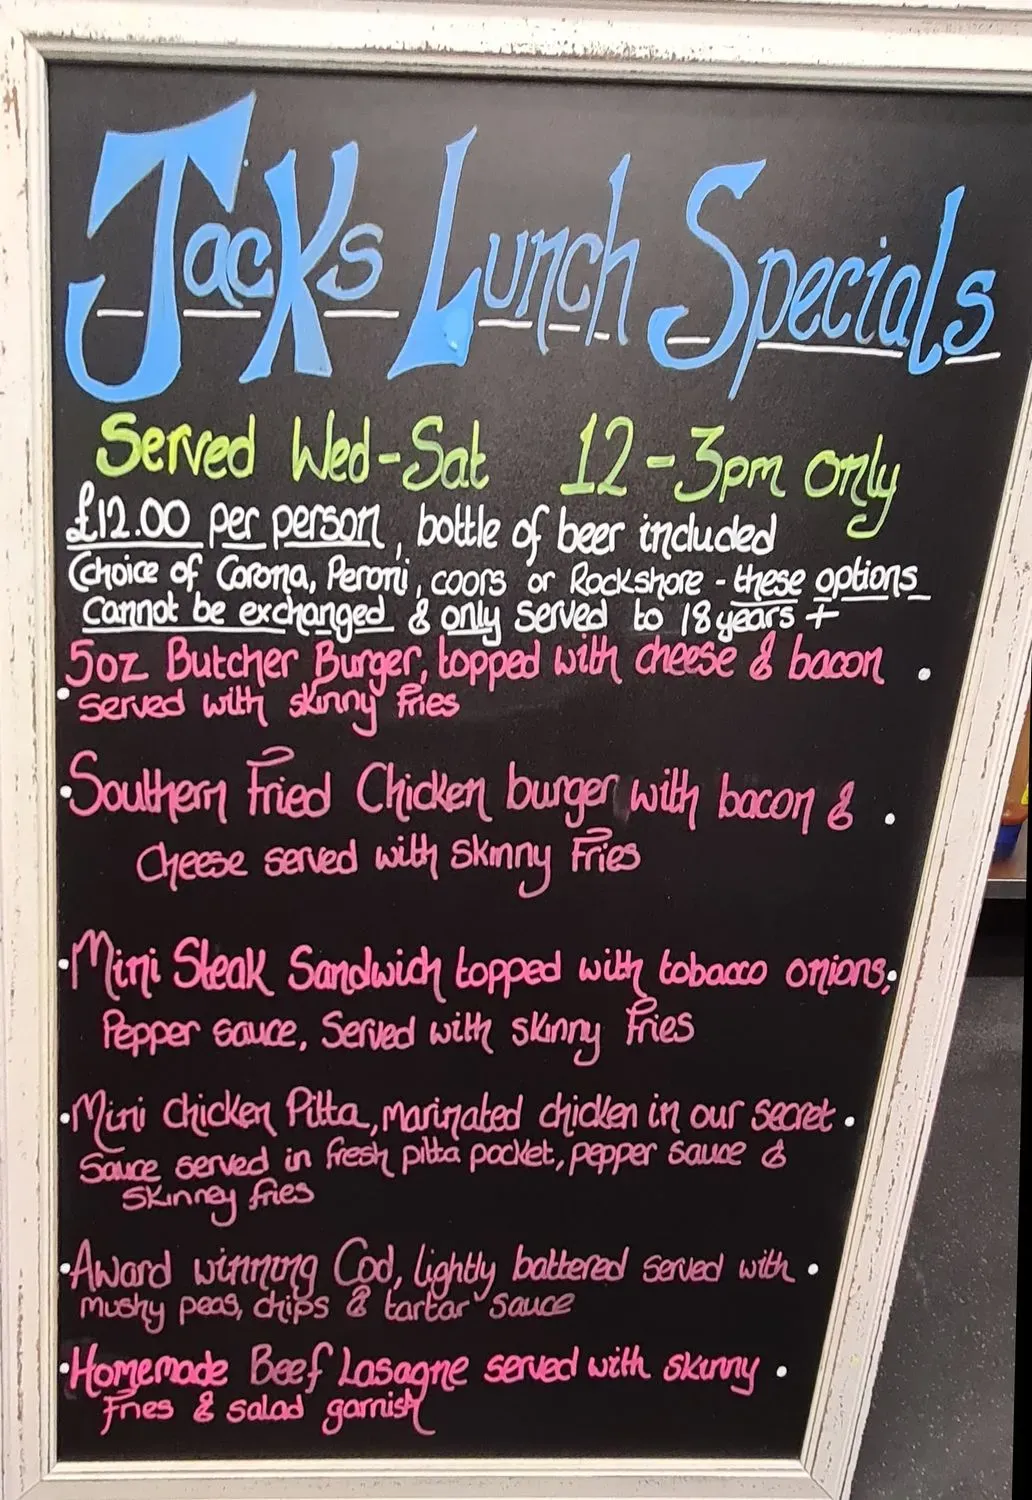 Jacks Lunch Specials
Served Wed-Sat 12-3pm only
£12.00 per person, bottle of beer included
(choice of Corona, Peroni, coors or Rockshore - these options
cannot be exchanged & only served to 18 years +
5oz Butcher Burger, topped with cheese & bacon
served with skinny fries
Southern Fried Chicken burger with bacon &
Cheese served with skinny Fries
Mini Steak Sandwich topped with tobacco onions,
Pepper sauce, Served with skinny Fries
Mini chicken Pitta, marinated chicken in our secret
Sauce served in fresh pitta pocket, pepper sauce &
Skinney fries
Award winning Cod, lightly battered served with
mushy peas, chips & tartar sauce
Homemade Beef Lasagne served with skinny
Fries & salad garnish